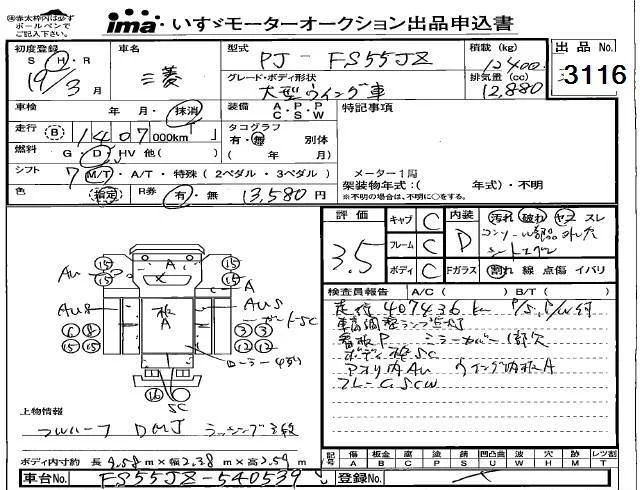 ㊟赤太枠内は必ず
ボールペンで
ご記入下さい。
ima いすゞモーターオークション出品申込書
初度登録 S・H・R 19/3月
車名 三菱
型式 PJ-FS55JZ
グレード・ボディ形状 大型ウイング車
積載 (kg) 12400
排気量 (cc) 12,880
出品 No. 3116
車検 年・月・抹消
装備 A・P・P
C・S・W
特記事項
走行 Ⓑ 1407000km「」
タコグラフ 有・無 別体
( 年 月)
燃料 G・D・HV 他( )
シフト 7 M/T・A/T・特殊(2ペダル・3ペダル)
メーター1局
架装物年式:( 年式)・不明
※不明の場合は、不明に○をする。
色 指定 R券 有・無 13,580円
評価 3.5
キャブ C
フレーム C
ボディ C
内装 D 汚れ 破れ ヤコ スレ
Fガラス 割れ 線 点傷 イバリ
検査員報告 A/C( ) B/T( )
走行407436km P/S, P/W付
車高調整ランプ点灯
看板P ミラーカバー1部欠
ボディ SC
アオリ内AU ウイング内板A
フレームSCW
15 15 A 15 15
AU A
AUS 板A AUS
ゲートSC
6 8 3 3
15 15 12 12
ローラー4列
16 SC
上物情報
フルハーフ DMJ ラッシング2段
ボディ内寸約 長9.58m×幅2.38m×高2.59m
記号 傷A 板B 腐C 塗P 錆S 凹凸曲U 波W 穴H 跡M レツ割T
車台No. FS55JZ-540539
登録No.